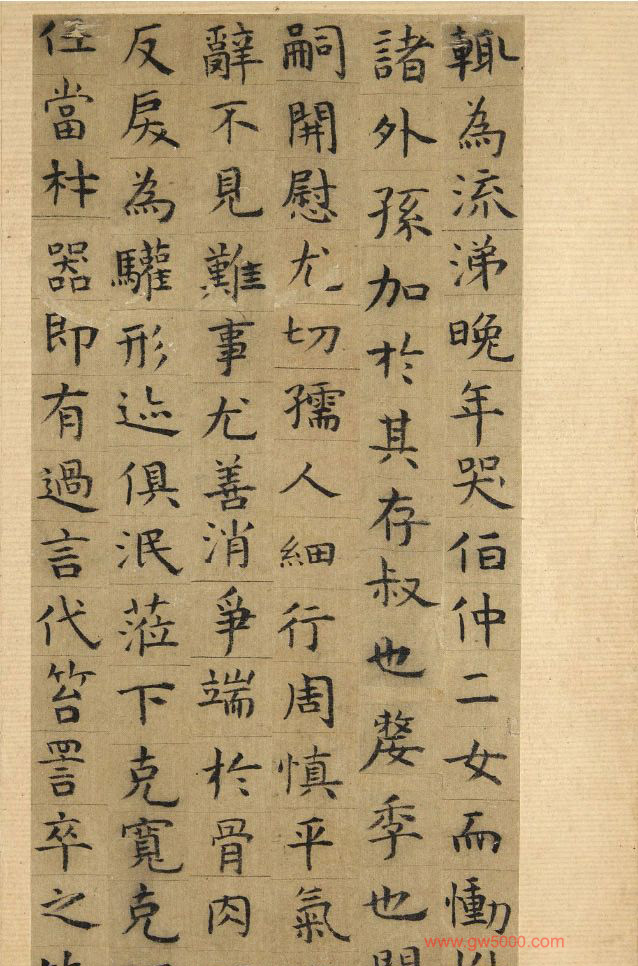 輒為流涕晚年哭伯仲二女而慟
諸外孫加於其存叔也嫠季也
嗣開慰尤切孺人細行周慎平氣
辭不見難事尤善消爭端於骨肉
反戾為驩形迹俱泯蒞下克寬克
任當材器即有過言代笞詈卒之
www.gw5000.com